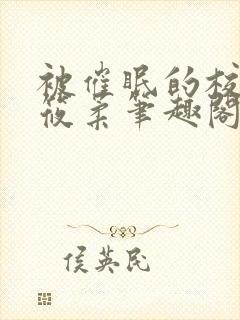 被催眠的校
筱柔笔趣阁
侯英民